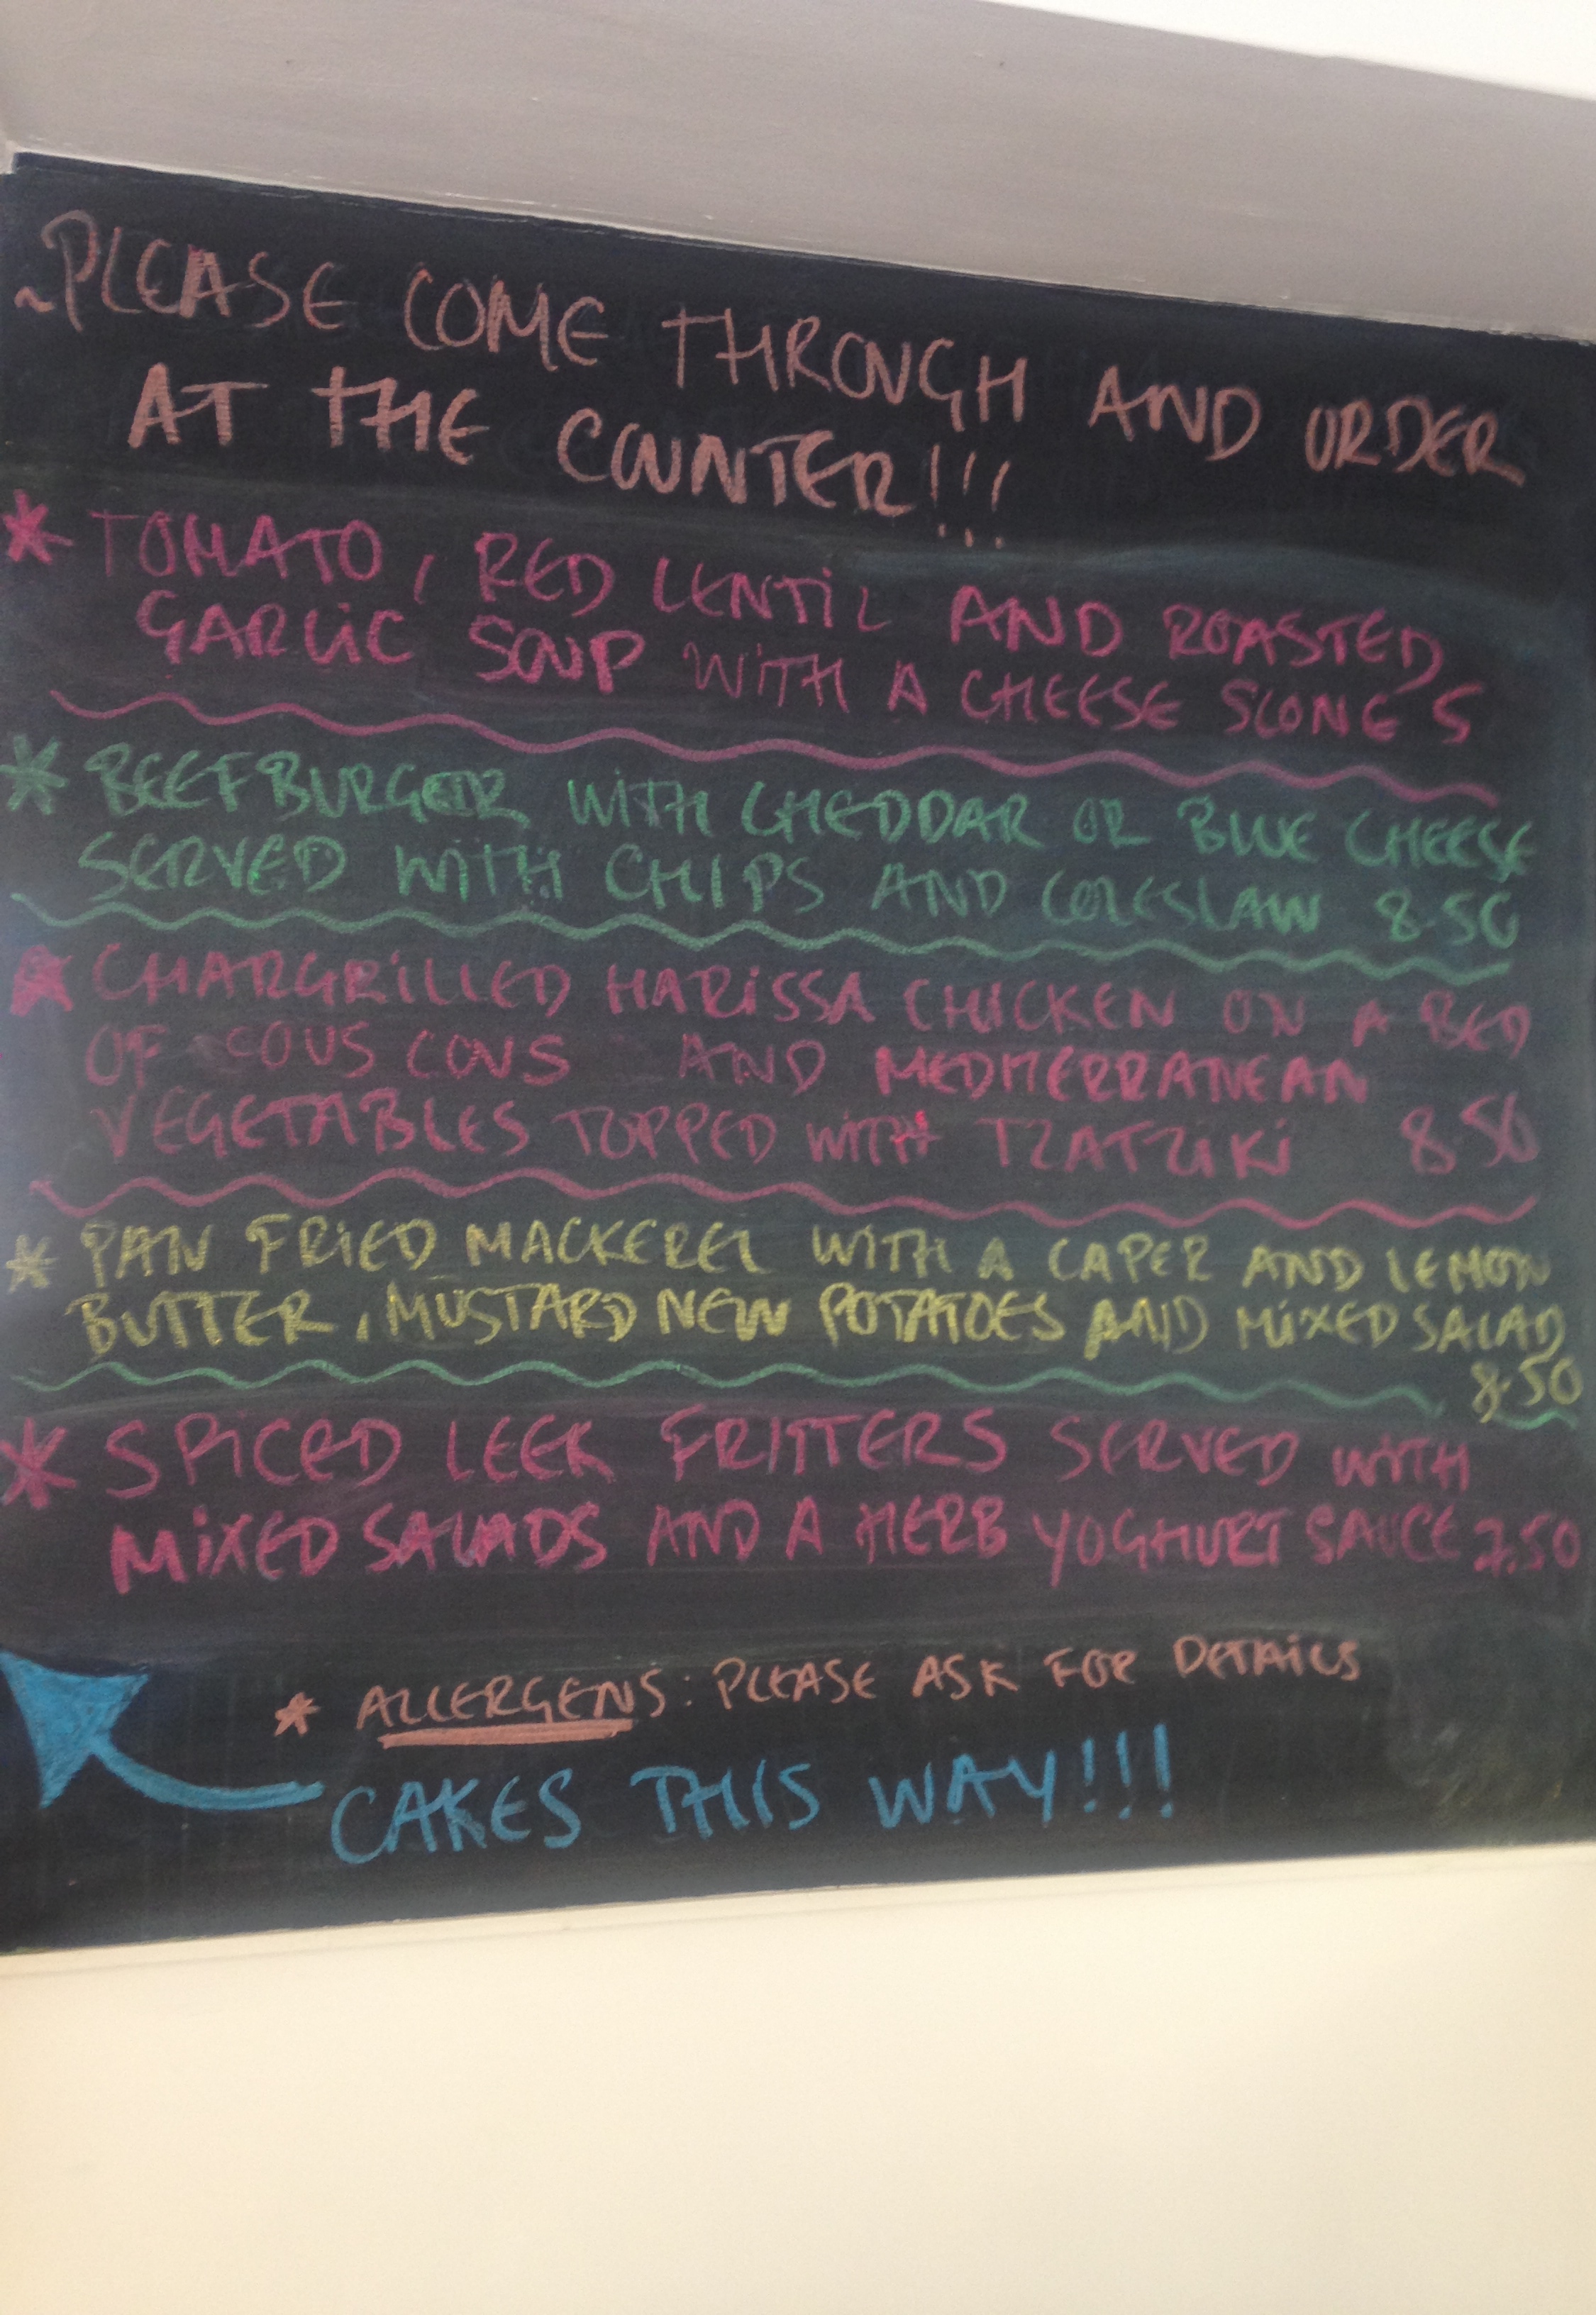 ~PLEASE COME THROUGH AND ORDER
AT THE COUNTER!!!
* TOMATO, RED LENTIL AND ROASTED
GARLIC SOUP WITH A CHEESE SCONE 5
* BEEFBURGER WITH CHEDDAR OR BLUE CHEESE
SERVED WITH CHIPS AND COLESLAW 8.50
* CHARGRILLED HARISSA CHICKEN ON A BED
OF COUS COUS AND MEDITERRANEAN
VEGETABLES TOPPED WITH TZATZIKI 8.50
* PAN FRIED MACKEREL WITH A CAPER AND LEMON
BUTTER, MUSTARD NEW POTATOES AND MIXED SALAD
8.50
* SPICED LEEK FRITTERS SERVED WITH
MIXED SALADS AND A HERB YOGHURT SAUCE 7.50
* ALLERGENS: PLEASE ASK FOR DETAILS
CAKES THIS WAY!!!